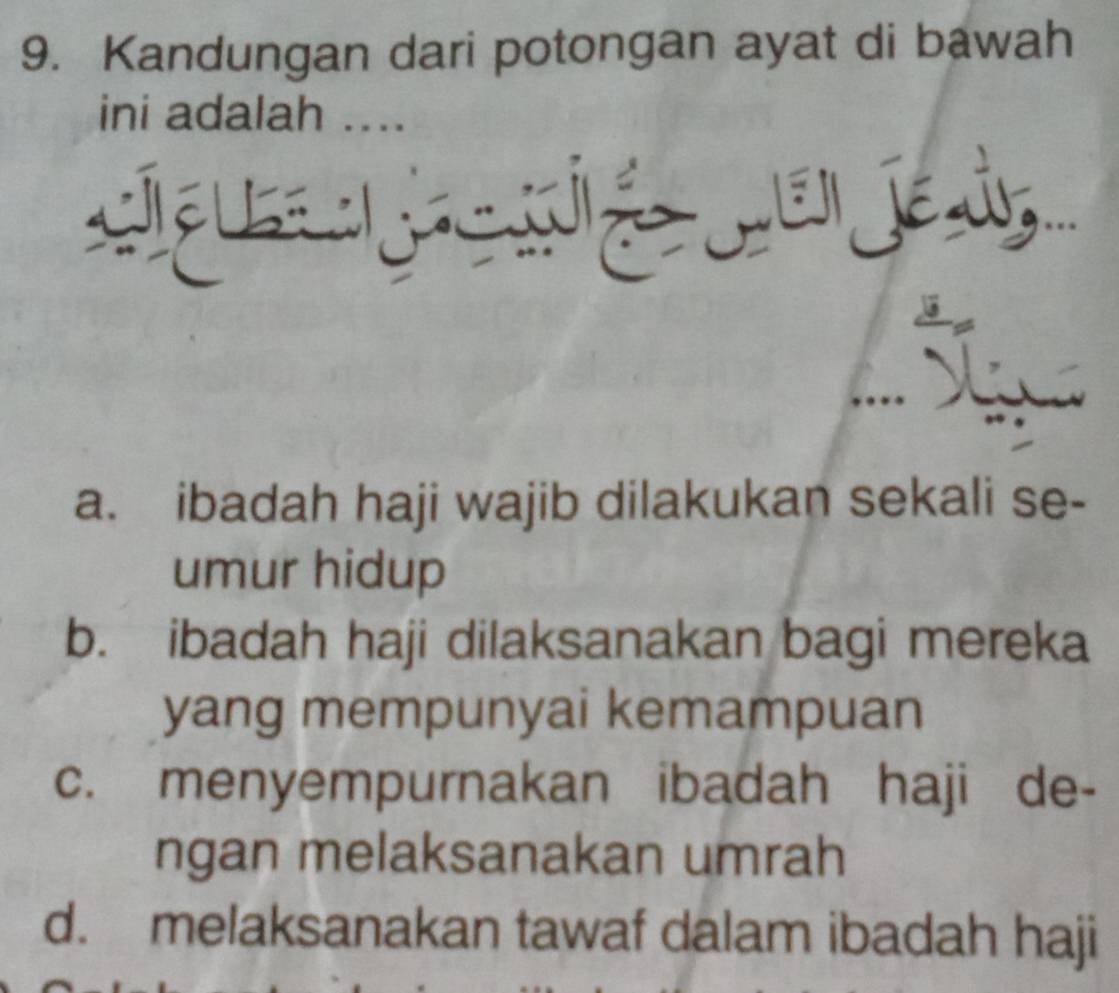 9. Kandungan dari potongan ayat di bawah
ini adalah ....
...وَلِلّٰهِ عَلَى النَّاسِ حِجُّ الْبَيْتِ مَنِ اسْتَطَاعَ اِلَيْهِ
سَبِيْلًاۗ ....
a. ibadah haji wajib dilakukan sekali se-
umur hidup
b. ibadah haji dilaksanakan bagi mereka
yang mempunyai kemampuan
c. menyempurnakan ibadah haji de-
ngan melaksanakan umrah
d. melaksanakan tawaf dalam ibadah haji